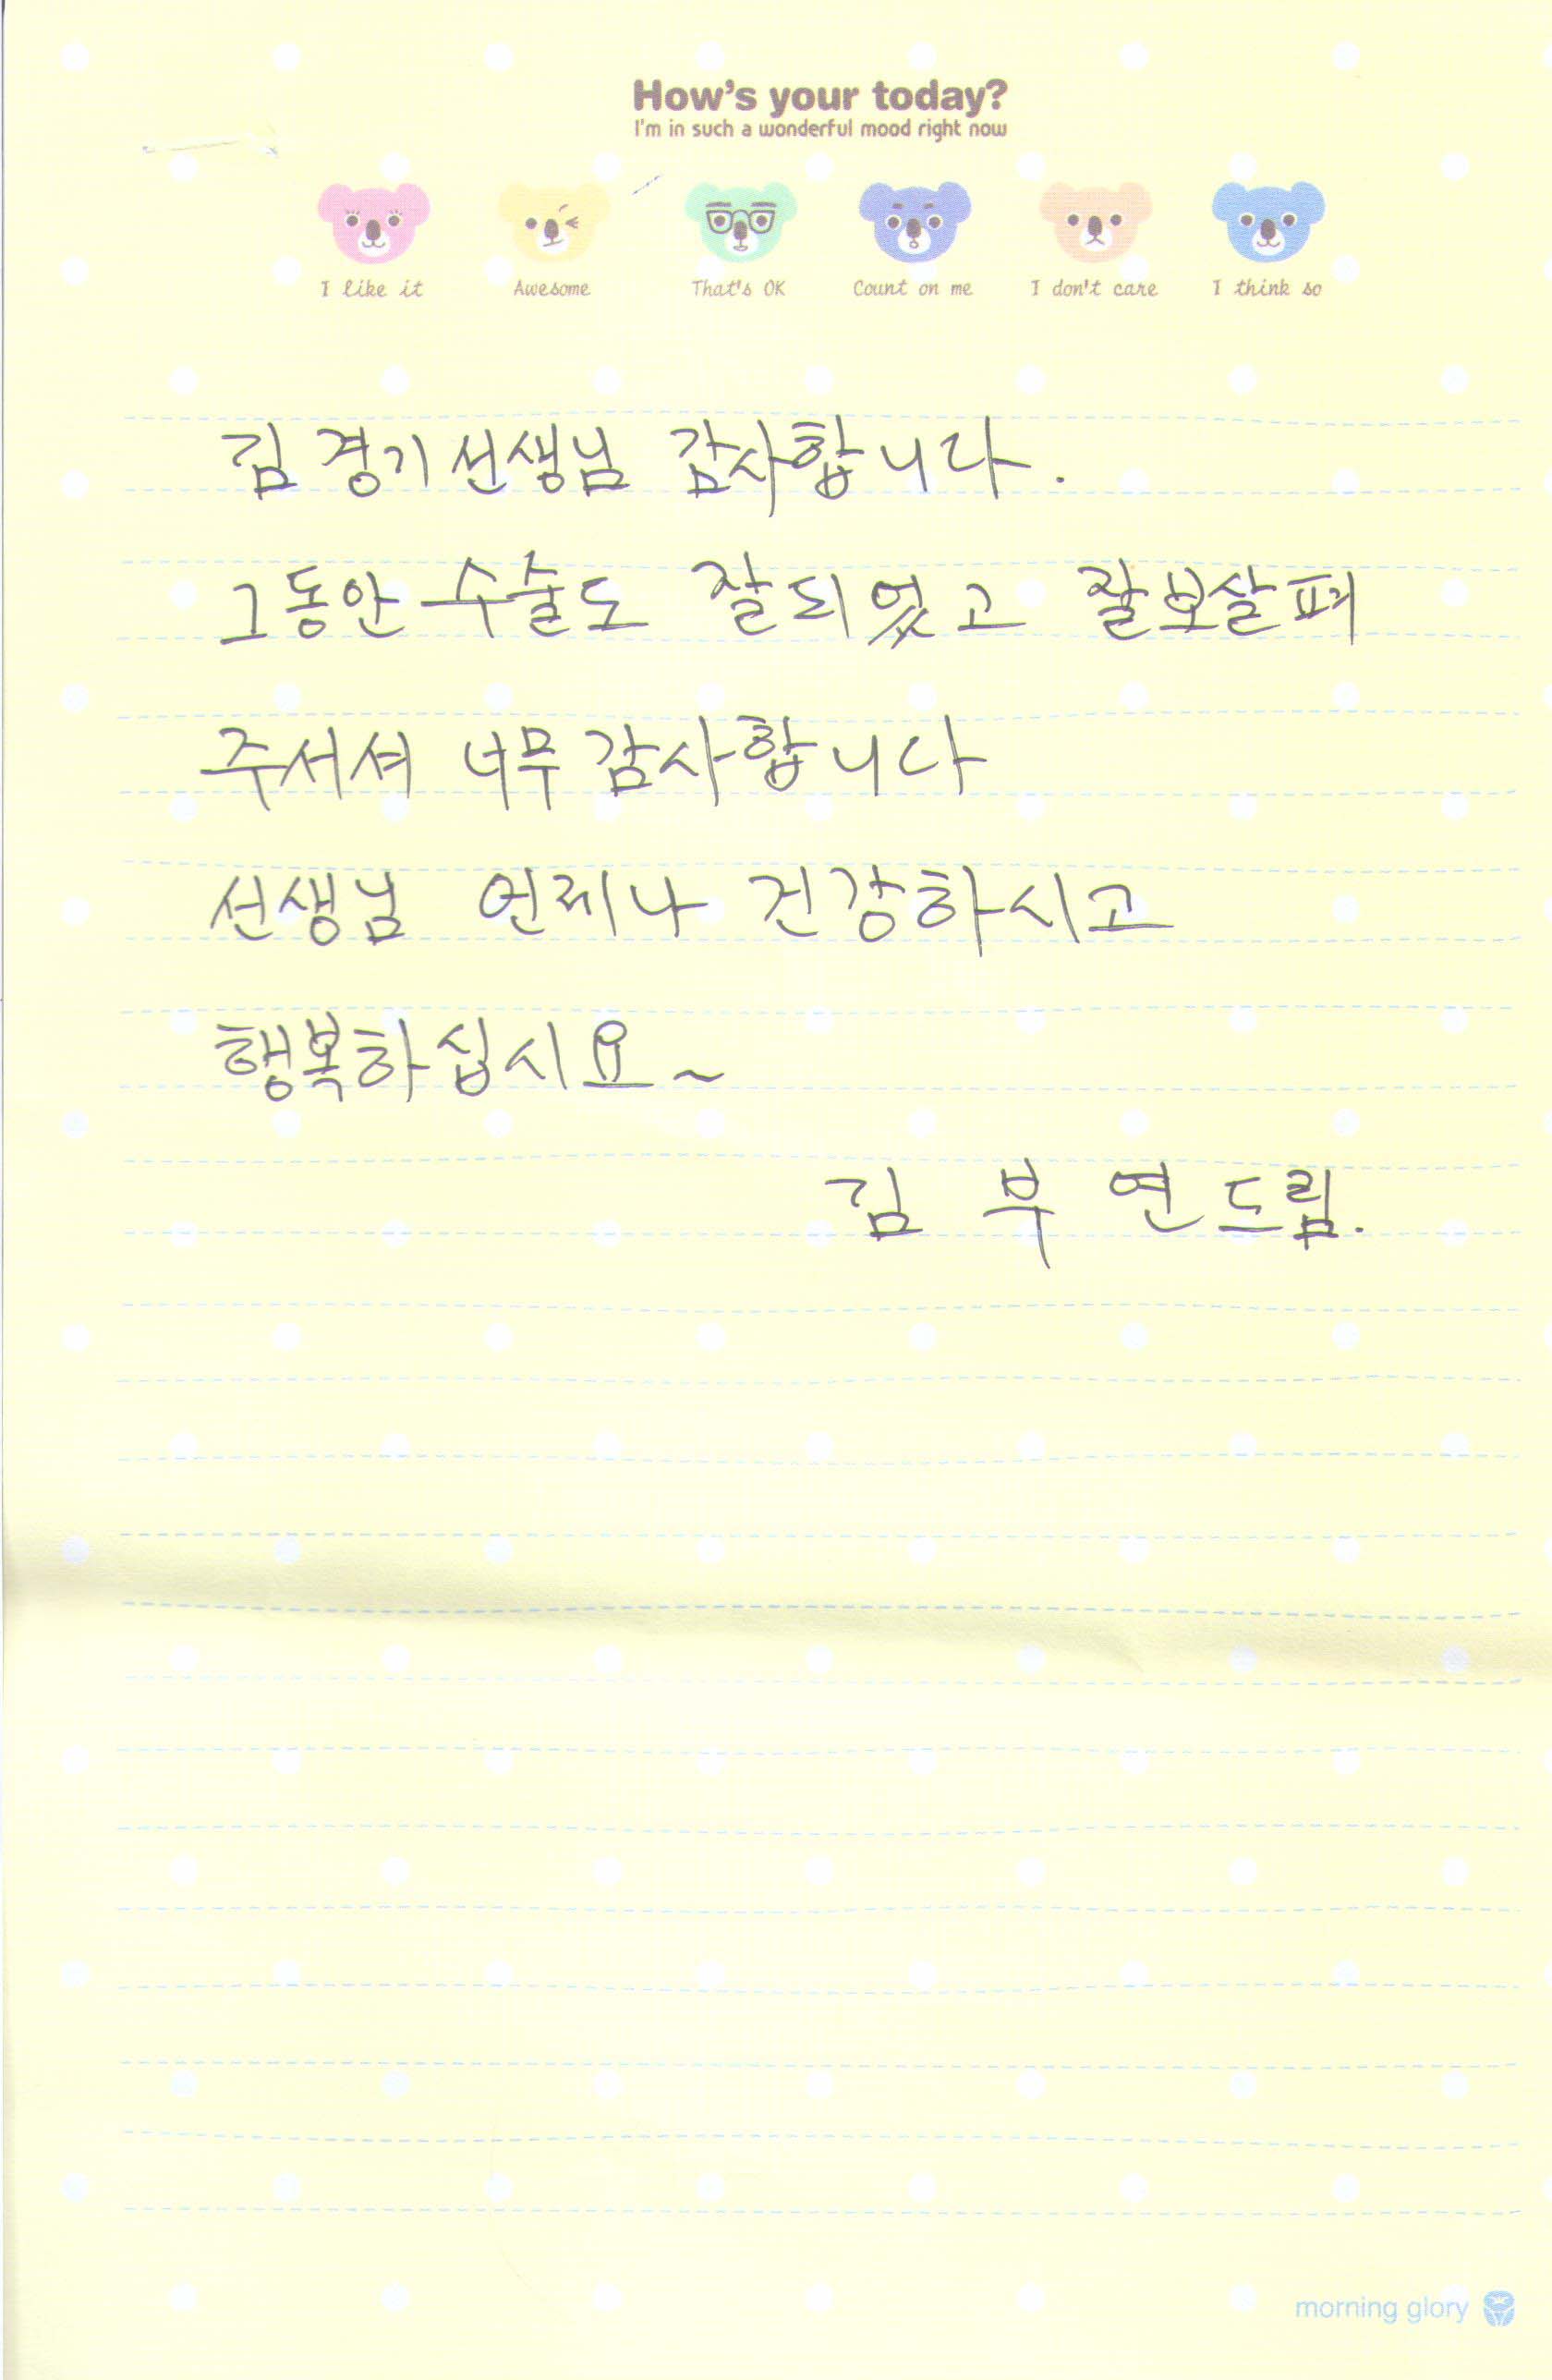 How's your today?
I'm in such a wonderful mood right now
I like it Awesome That's OK Count on me I don't care I think so
김경기선생님 감사합니다.
그동안 수술도 잘되었고 잘보살펴
주서셔 너무 감사합니다
선생님 언제나 건강하시고
행복하십시요~
김부연드림.
morning glory